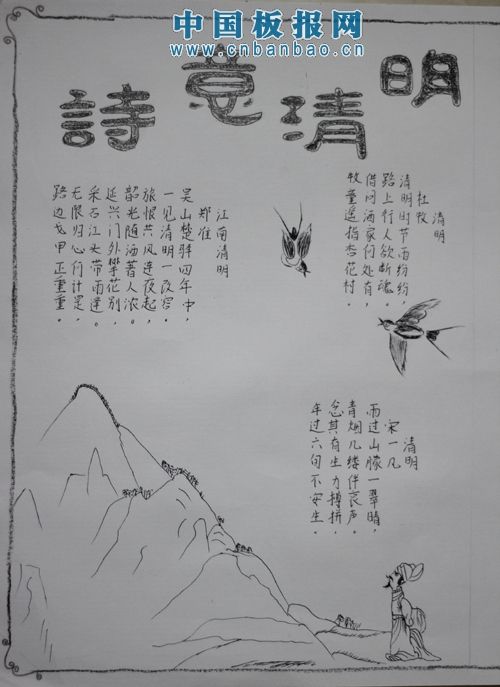 中国板报网
www.cnbanbao.cn
詩意清明
清明
杜牧
清明时节雨纷纷，
路上行人欲断魂。
借问洒家何处有，
牧童遥指杏花村。
江南清明
郑准
吴山楚驿四年中，
一见清明一改容。
旅恨共风连夜起，
韶光随洒著人浓。
延兴门外攀花别，
采石江头带雨逢。
无限归心何计是，
路边戈甲正重重。
清明
宋一凡
雨过山朦一翠晴，
青烟几缕伴哀声。
忿其有生力搏拼，
年过六旬不安生。